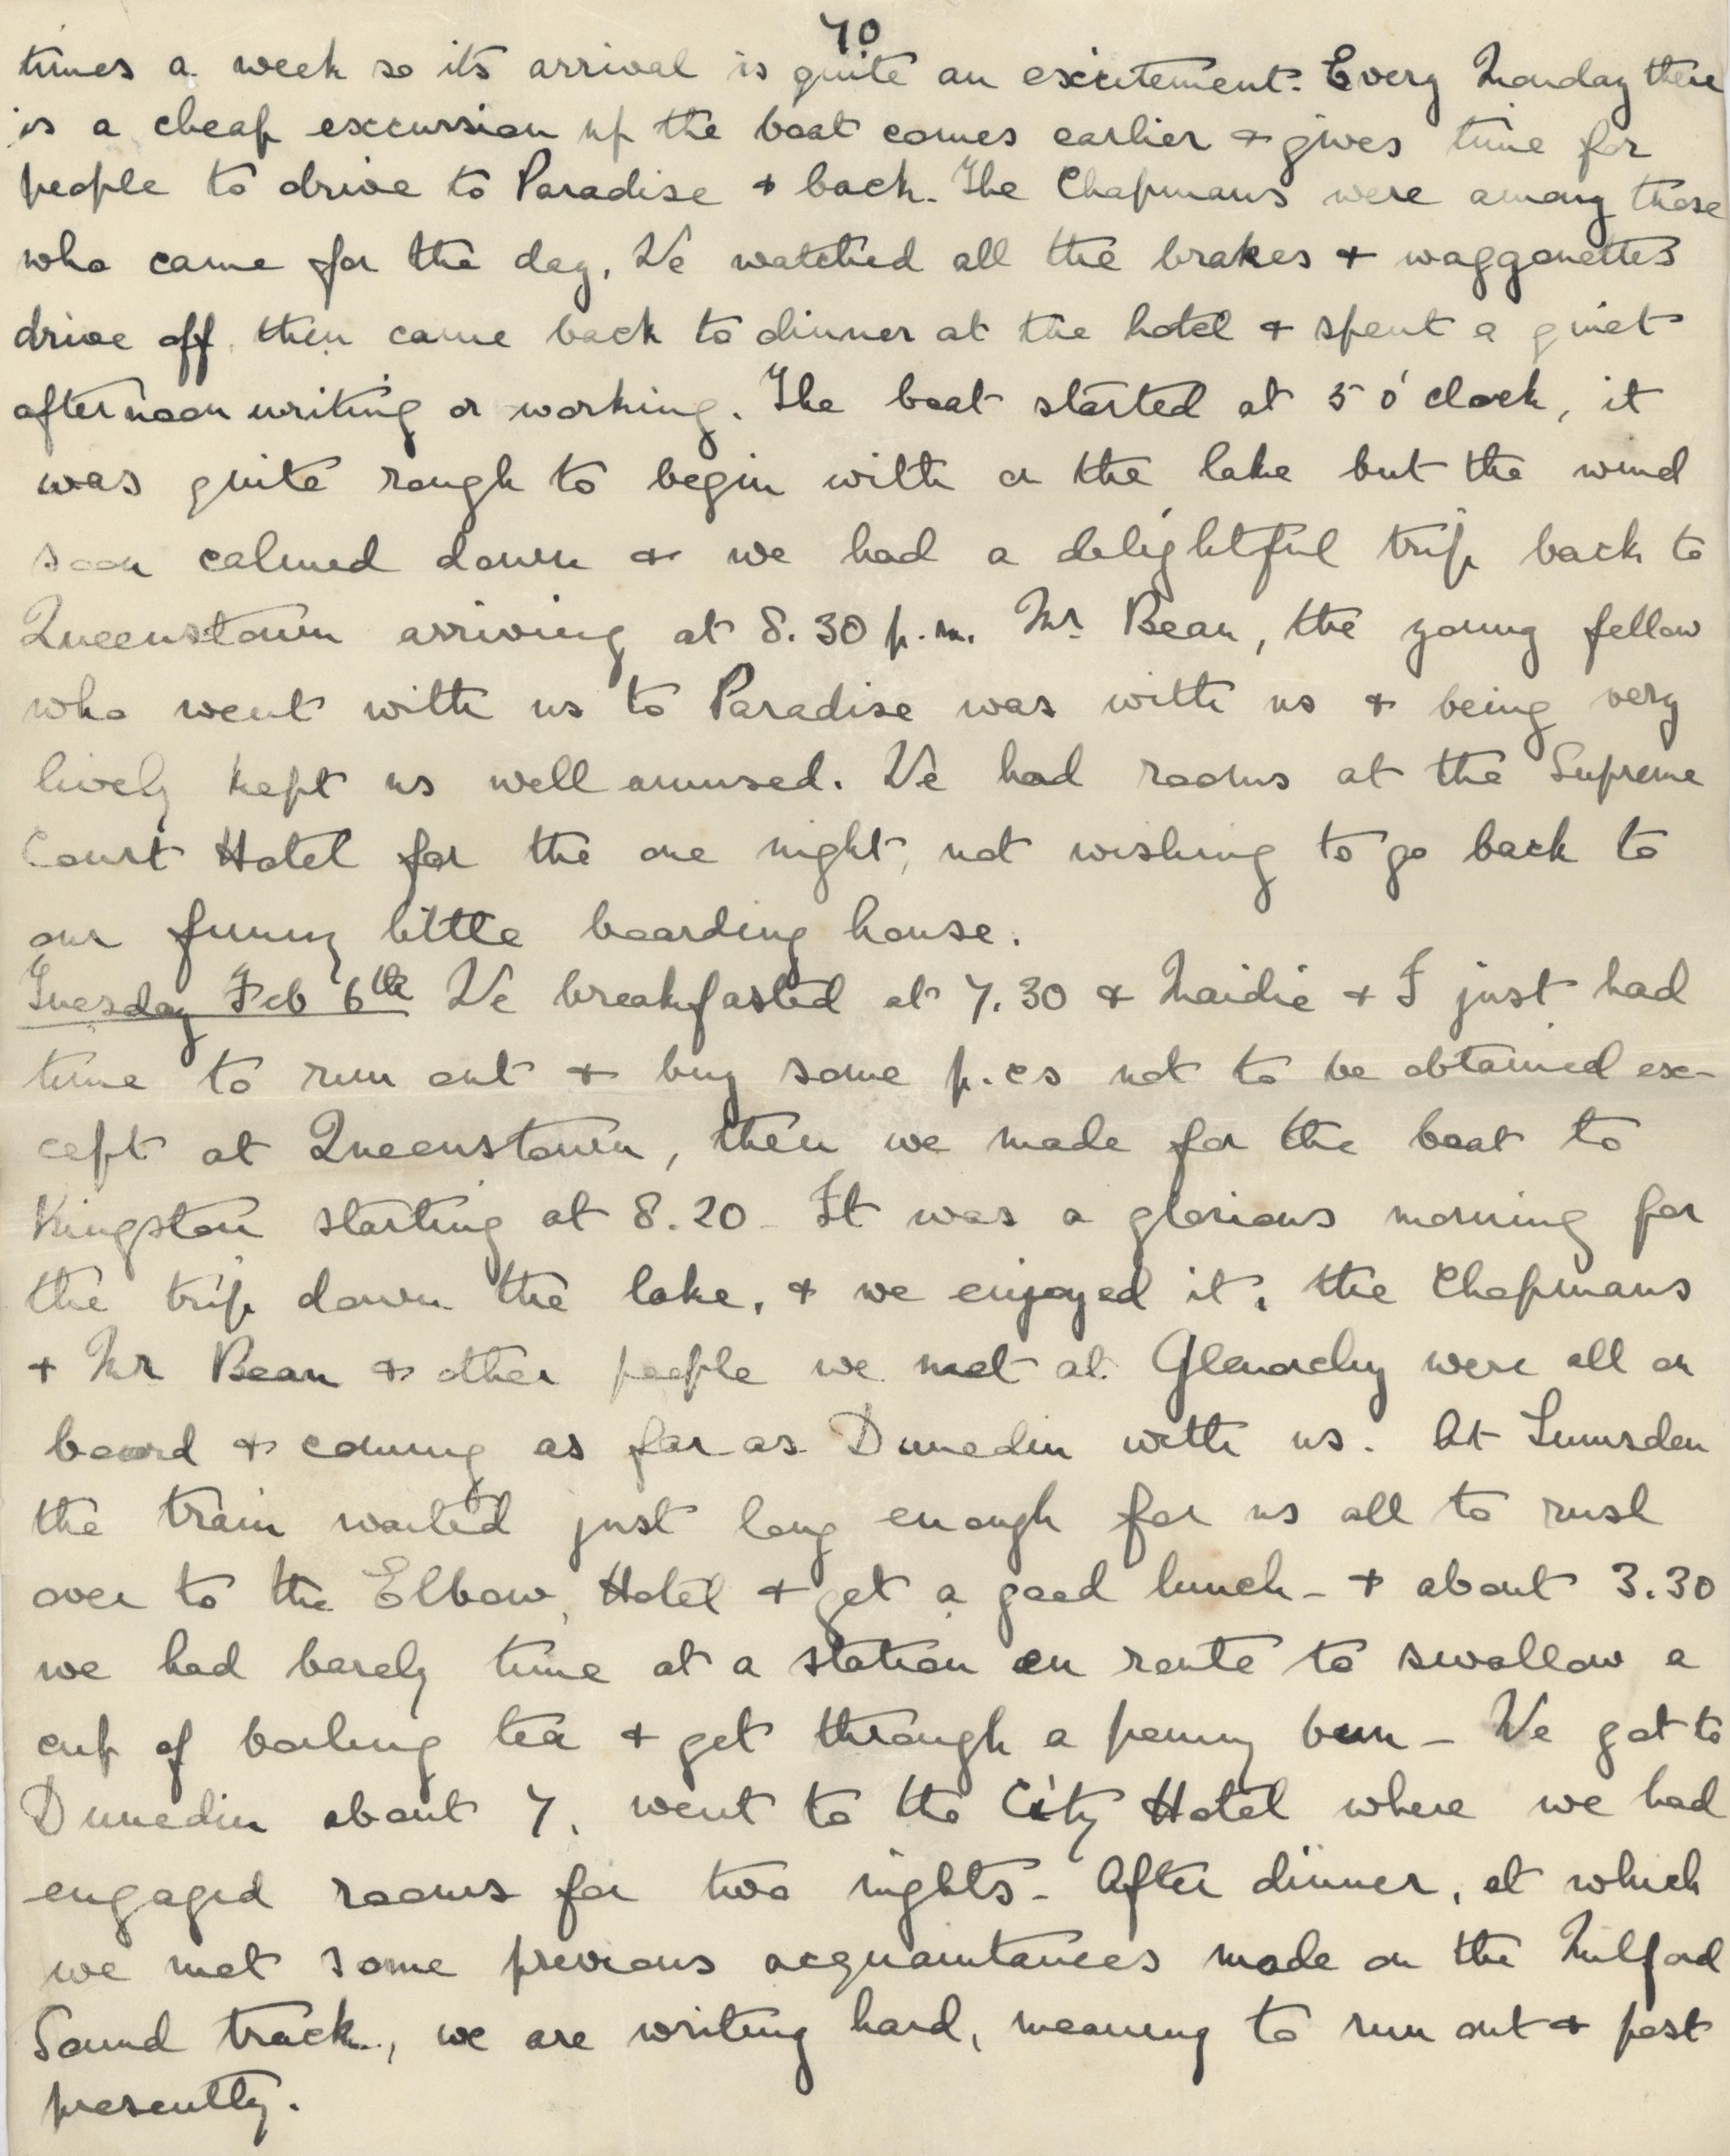 70
times a week so its arrival is quite an excitement. Every Monday there
is a cheap excursion up the boat comes earlier & gives time for
people to drive to Paradise & back. The Chapmans were among those
who came for the day. We watched all the brakes & waggonettes
drive off, then came back to dinner at the hotel & spent a quiet
afternoon writing or working. The boat started at 5 o'clock, it
was quite rough to begin with on the lake but the wind
soon calmed down & we had a delightful trip back to
Queenstown arriving at 8.30 p.m. Mr Bean, the young fellow
who went with us to Paradise was with us & being very
lively kept us well amused. We had rooms at the Supreme
Court Hotel for the one night, not wishing to go back to
our funny little boarding house.
Tuesday Feb 6th We breakfasted at 7.30 & Maidie & I just had
time to run out & buy some p.cs not to be obtained ex-
cept at Queenstown, then we made for the boat to
Kingston starting at 8.20 - It was a glorious morning for
the trip down the lake, & we enjoyed it, the Chapmans
& Mr Bean & other people we met at Glenorchy were all on
board & coming as far as Dunedin with us. At Lumsden
the train waited just long enough for us all to rush
over to the Elbow Hotel & get a good lunch - & about 3.30
we had barely time at a station en route to swallow a
cup of boiling tea & get through a penny bun - We got to
Dunedin about 7, went to the City Hotel where we had
engaged rooms for two nights - After dinner, at which
we met some previous acquaintances made on the Milford
Sound track, we are writing hard, meaning to run out & post
presently.